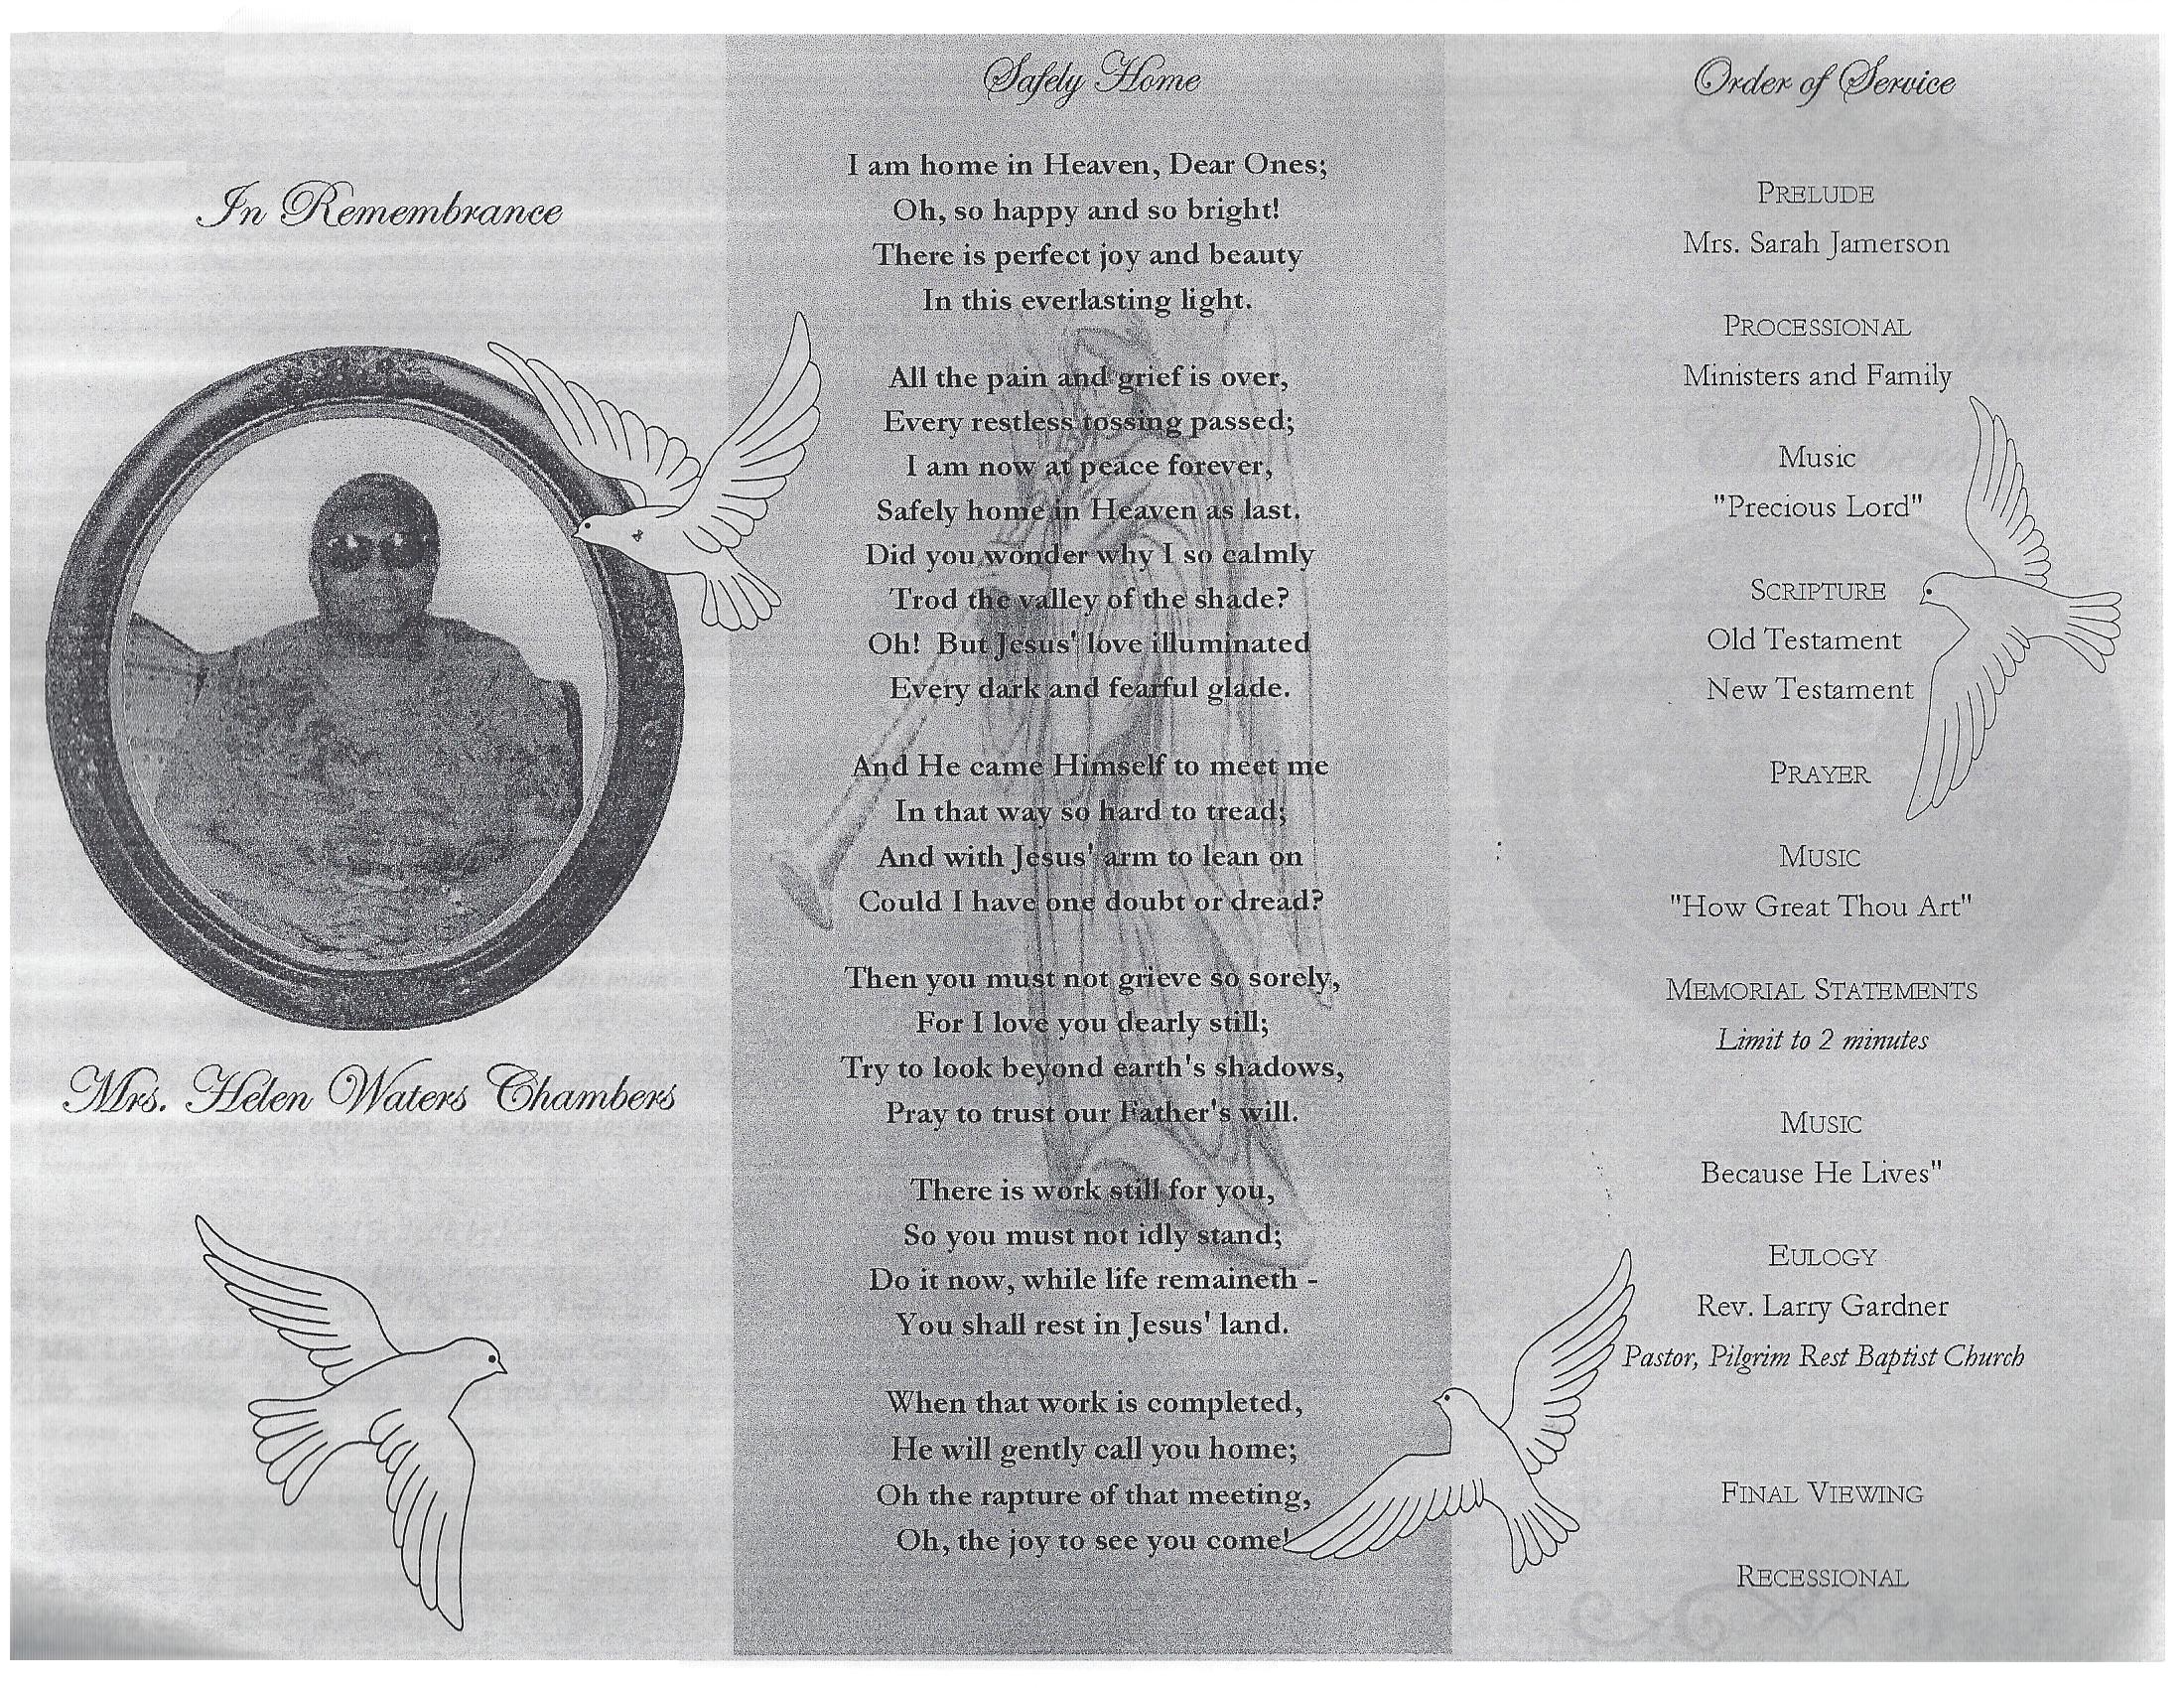 In Remembrance
Mrs. Helen Waters Chambers
Safely Home
I am home in Heaven, Dear Ones;
Oh, so happy and so bright!
There is perfect joy and beauty
In this everlasting light.
All the pain and grief is over,
Every restless tossing passed;
I am now at peace forever,
Safely home in Heaven as last.
Did you wonder why I so calmly
Trod the valley of the shade?
Oh!  But Jesus' love illuminated
Every dark and fearful glade.
And He came Himself to meet me
In that way so hard to tread;
And with Jesus' arm to lean on
Could I have one doubt or dread?
Then you must not grieve so sorely,
For I love you dearly still;
Try to look beyond earth's shadows,
Pray to trust our Father's will.
There is work still for you,
So you must not idly stand;
Do it now, while life remaineth -
You shall rest in Jesus' land.
When that work is completed,
He will gently call you home;
Oh the rapture of that meeting,
Oh, the joy to see you come!
Order of Service
PRELUDE
Mrs. Sarah Jamerson
PROCESSIONAL
Ministers and Family
Music
"Precious Lord"
SCRIPTURE
Old Testament
New Testament
PRAYER
MUSIC
"How Great Thou Art"
MEMORIAL STATEMENTS
Limit to 2 minutes
MUSIC
Because He Lives"
EULOGY
Rev. Larry Gardner
Pastor, Pilgrim Rest Baptist Church
FINAL VIEWING
RECESSIONAL